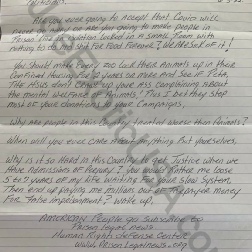 Are you ever going to accept that Covid will
never go away or are you going to make people in
Prison live in isolation locked in a small room with
nothing to do and shit for Food Forever? We are sick of it!
You should make every zoo lock their Animals up in their
Confined Housing for 2 years or more and see if Peta,
The ASPCA don't crawl up your ass complaining about
the Mental Welfare of Animals! I bet they stop
most of your donations to your campaigns.
Why are people in this country treated worse than Animals?
When will you ever care about anything but yourselves.
Why is it so Hard in this Country to get Justice when we
Have Admissions of Perjury? You would rather me loose
5 to 7 years of my life waiting in your slow system.
Then end up paying me millions out of Taxpayer money
for False imprisonment? Wake up.
American People go Subscribe to
Prison Legal News
Human Rights Defense Center
www.PrisonLegalnews.org